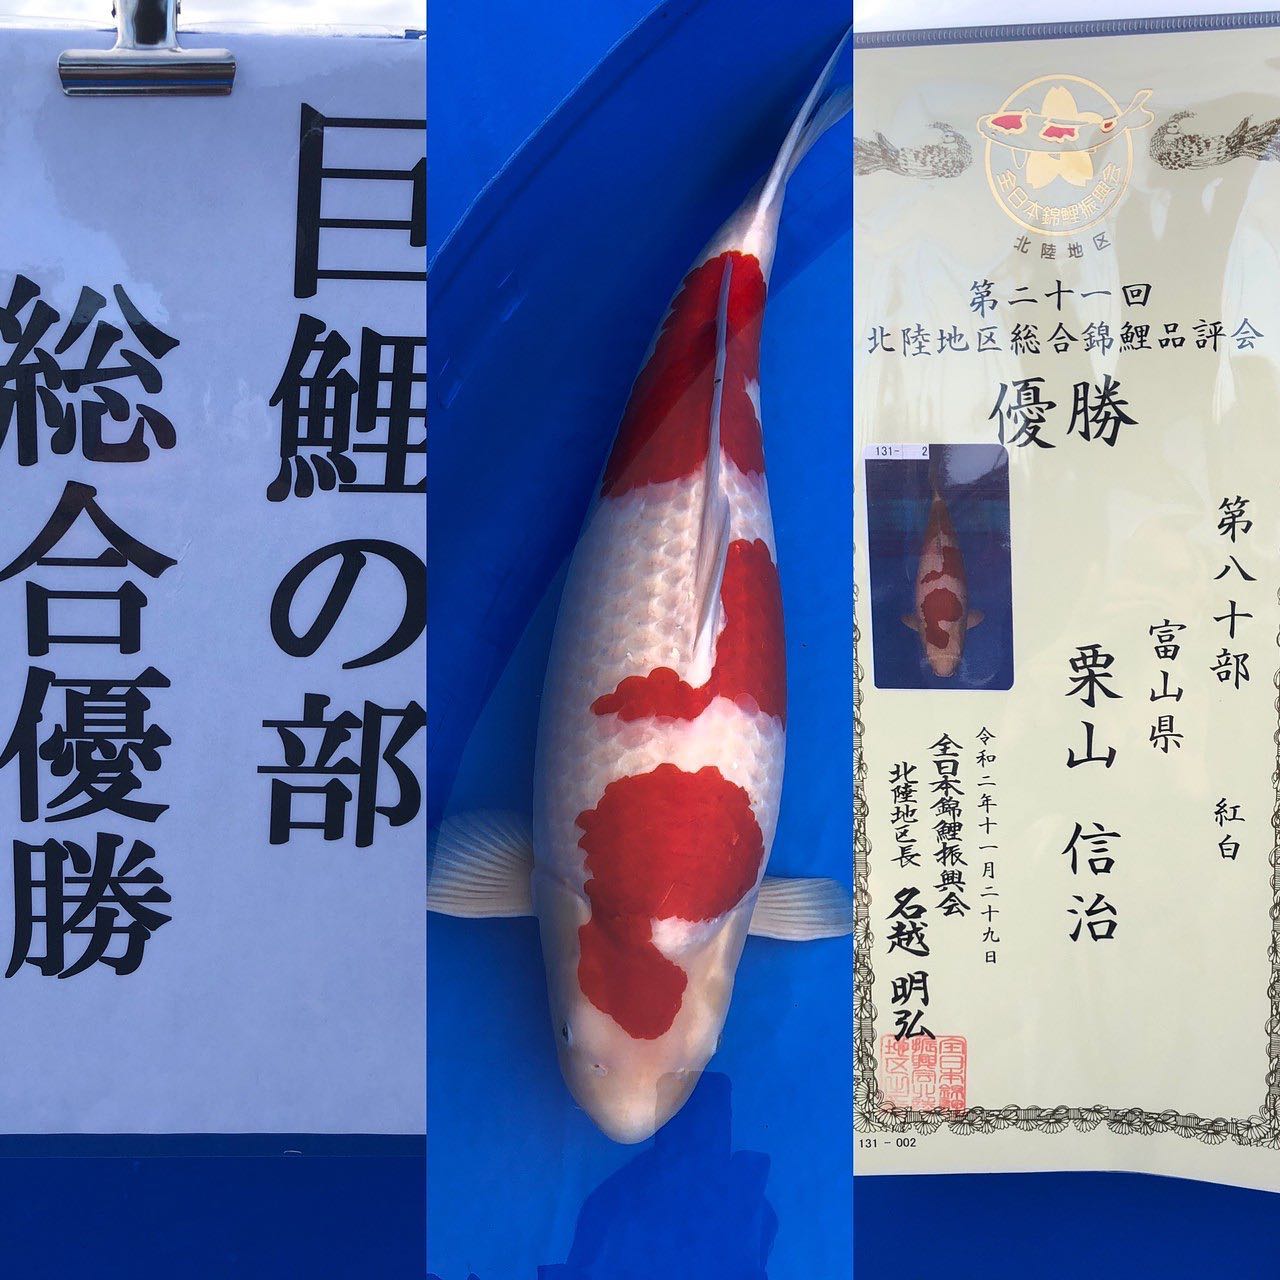 巨鯉の部
総合優勝
全日本錦鯉振興会
北陸地区
第二十一回
北陸地区総合錦鯉品評会
優勝
131- 2
第八十部 紅白
富山県
栗山 信治
令和二年十一月二十九日
全日本錦鯉振興会
北陸地区長 名越 明弘
131 - 002